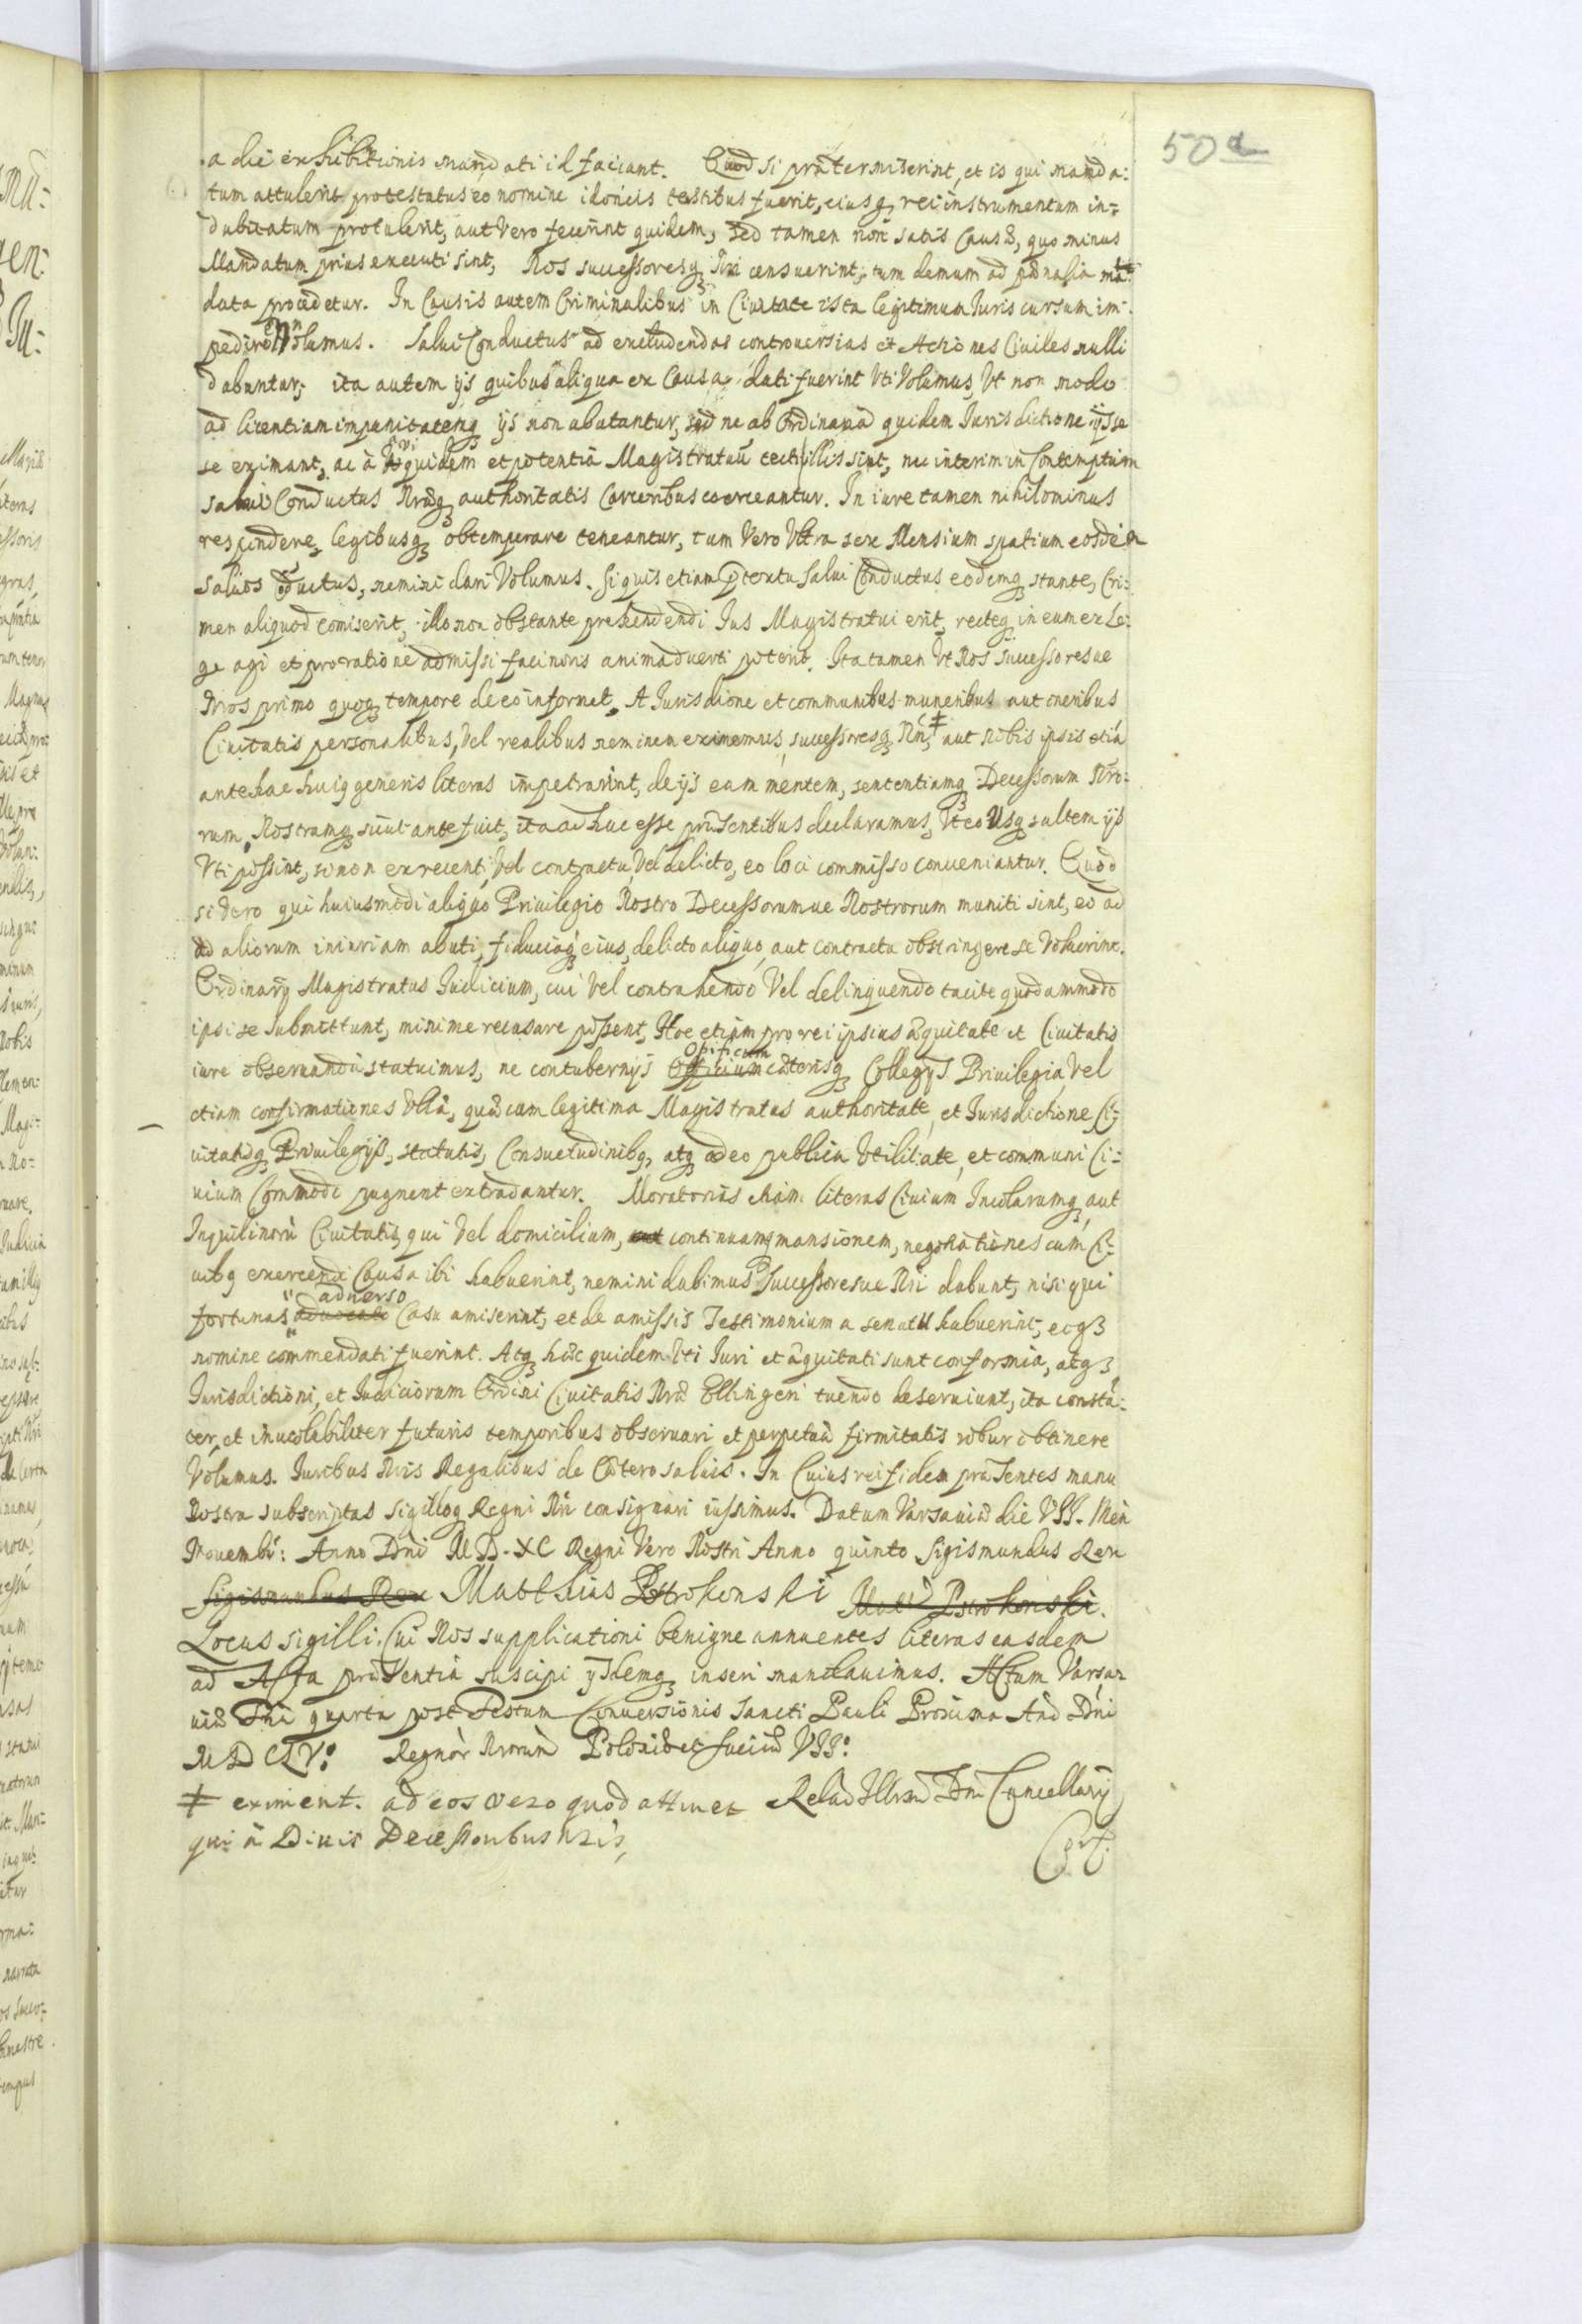 50a
a die exhibitionis mandati id faciant. Quod si prætermiserint, et is qui manda:
tum attulerit protestatus eo nomine idoneis testibus fuerit, eiusq rei instrumentum in:
dubitatum protulerit, aut Vero fecerint quidem, sed tamen non satis Causæ, quo minus
Mandatum prius executi sint, Nos successoresq Nri censuerint, tum demum ad pænalia mā:
data procedetur. In Causis autem Criminalibus in Ciuitate ista legitimum Iuris cursum im:
pedire Nolumus. Salui Conductus ad excludendas controuersias et Actiones Ciuiles nulli
dabuntur; ita autem ijs quibus aliqua ex Causa dati fuerint Vti Volumus, Vt non modo
ad licentiam impunitatemq ijs non abutantur, sed ne ab Ordinaria quidem Iurisdictione ijs se
se eximant, ac à Vi quidem et potentia Magistratuū tecti illis sint, nec interim in Contemptum
salui Conductus Nræq authoritatis Carceribus coerceantur. In iure tamen nihilominus
respondere, legibusq obtemperare teneantur, tum Vero Vltra sex Mensium spatium eosdem
saluos cōductus, nemini dari Volumus. Si quis etiam ptextu salui Conductus eodemq stante, Cri:
men aliquod comiserit, illo non obstante prehendendi Ius Magistratui erit, recteq in eum ex Le:
ge agi et pro ratione admissi facinoris animaduerti poterit. Ita tamen Vt Nos successoresue
Nros primo quoq tempore de eo informet. A Iurisdione et communibus muneribus aut oneribus
Ciuitatis personalibus, Vel realibus neminem eximemus, successoresq Nri, ‡ aut Nobis ipsis etiā
antehac huiq generis literas impetrarint, de ijs eam mentem, sententiamq Decessorum Nro:
rum, Nostramq sicut ante fuit, ita adhuc esse præsentibus declaramus, Vt eo Usq saltem ijs
Vti possint, si non ex recenti, Vel contractu, Vel delicto, eo loci commisso conueniantur. Quod
si Vero qui huiusmodi aliquo Priuilegio Nostro Decessorumue Nostrorum muniti sint, eo ad
ad aliorum iniuriam abuti, fiduciaq eius, delicto aliquo, aut contractu obstringere se Voluerint.
Ordinarij Magistratus Iudicium, cui Vel contrahendo Vel delinquendo tacite quodammodo
ipsi se submittunt, minime recusare possent, Hoc etiam pro rei ipsius æquitate et Ciuitatis
iure obseruandū statuimus, ne contubernijs Officium Opificum cæterisq Collegijs Priuilegia Vel
etiam confirmationes Vllæ, quæ cum legitima Magistratus authoritate, et Iurisdictione Ci:
uitatisq Priuilegijs, statutis, Consuetudinibq, atq adeo publica Vtilitate, et communi Ci:
uium Commodo pugnent extradantur. Moratorias etiam literas Ciuium Incolarumq aut
Inquilinorū Ciuitatis, qui Vel domicilium, aut continuamq mansionem, negotiationes cum Ci:
uibq exercendi Causa ibi habuerint, nemini dabimus Successoresue Nri dabunt, nisi qui
fortunas aduocato aduerso Casu amiserint, et de amissis Testimonium a senatu habuerint, eoq
nomine commendati fuerint. Atq hæc quidem Vti Iuri et æquitati sunt conformia, atq
Iurisdictioni, et Iudiciorum Ordini Ciuitatis Nræ Ellbingeñ tuendo deseruiunt, ita constā:
ter, et inuiolabiliter futuris temporibus obseruari et perpetuæ firmitatis robur obtinere
Volumus. Iuribus Nris Regalibus de Cætero saluis. In Cuius rei fidem præsentes manu
Nostra subscriptas sigilloq Regni Nri consignari iussimus. Datum Varsauiæ die VII. Men
Nouembr: Anno Dni MD.XC Regni Vero Nostri Anno quinto Sigismundus Rex
Sigismundus Rex Matthias Pstrokonski Math Pstrokonski.
Locus sigilli. Cui Nos supplicationi benigne annuentes literas easdem
ad Acta præsentia suscipi ysdemq inseri mandauimus. Actum Varsa:
uiæ Fria quarta post Festum Conuersionis Sancti Pauli Proxima Anō Dni
MDCLVo Regnor Nrorum Poloniæ et Sueciæ VIIo
‡ eximent. ad eos vero quod attinet Relao Illrmi Dni Cancellarij
qui à Diuis Decessoribus nris,
Cort.